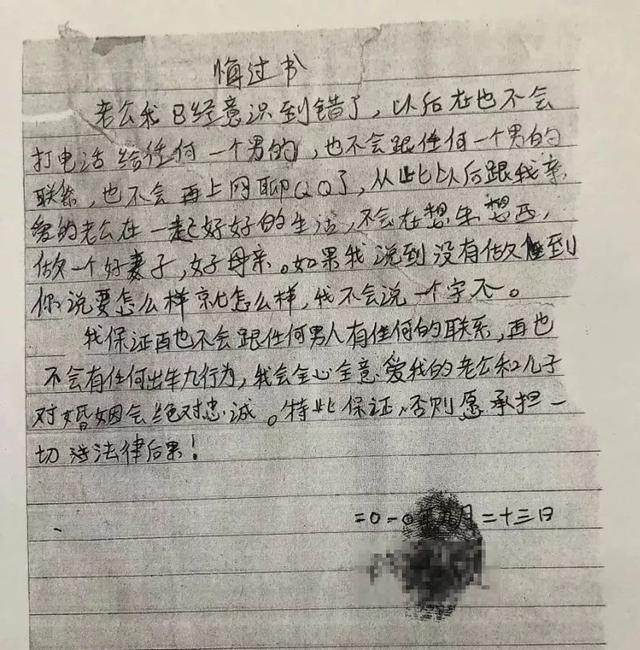 悔过书
老公我已经意识到错了，以后在也不会
打电话给任何一个男的，也不会跟任何一个男的
联系，也不会再上网聊QQ了，从此以后跟我亲
爱的老公在一起好好的生活，不会在想东想西，
做一个好妻子，好母亲。如果我说到没有做到
你说要怎么样就怎么样，我不会说一个字不。
我保证再也不会跟任何男人有任何的联系，再也
不会有任何出牛九行为，我会全心全意爱我的老公和儿子
对婚姻会绝对忠诚。特此保证，否则愿承担一
切法律后果！
二0一0年 月二十三日